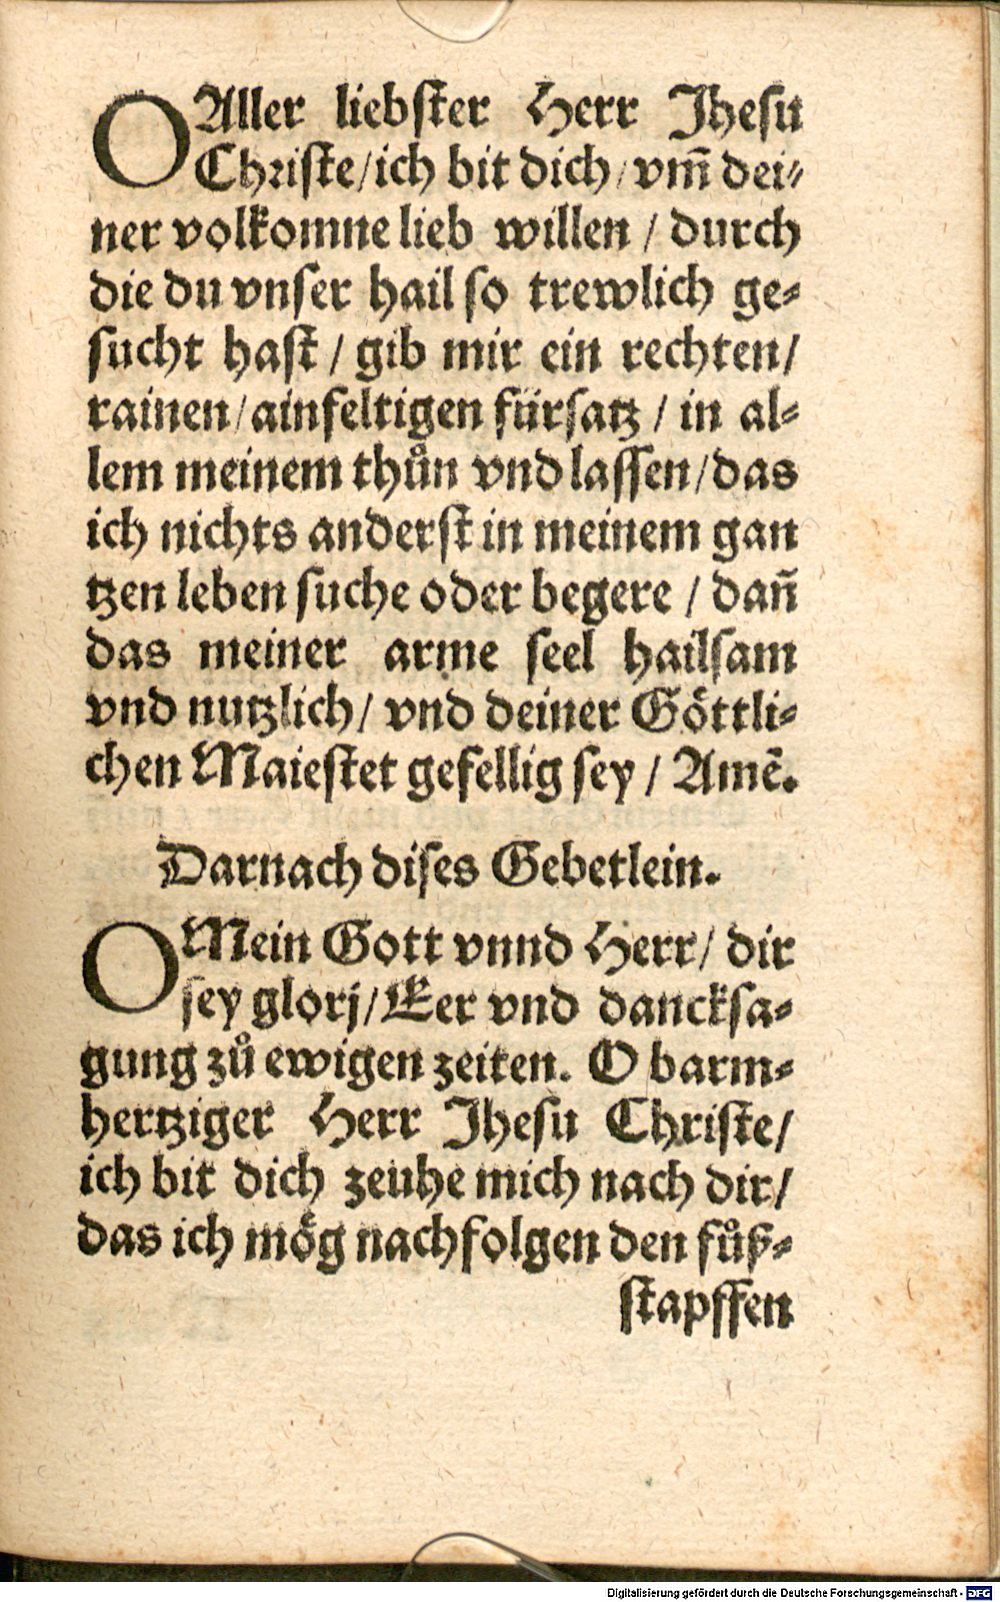 OAller liebſter Herr Jheſu
Chꝛiſte/ich bit dich/vm̃ dei⸗
ner volkomne lieb willen / durch
die du vnſer hail ſo trewlich ge⸗
ſucht haſt / gib mir ein rechten/
rainen/ainfeltigen fürſatz / in al⸗
lem meinem thůn vnd laſſen/das
ich nichts anderſt in meinem gan
tzen leben ſuche oder begere / dañ
das meiner arme ſeel hailſam
vnd nutzlich/ vnd deiner Göttli⸗
chen Maieſtet gefellig ſey / Amẽ.
Darnach diſes Gebetlein.
OMein Gott vnnd Herr/ dir
ſey glorj/Eer vnd danckſa⸗
gung zů ewigen zeiten. O barm⸗
hertziger Herr Jheſu Chriſte/
ich bit dich zeuhe mich nach dir/
das ich mög nachfolgen den fůß⸗
ſtapffen
Digitalisierung gefördert durch die Deutsche Forschungsgemeinschaft - DFG